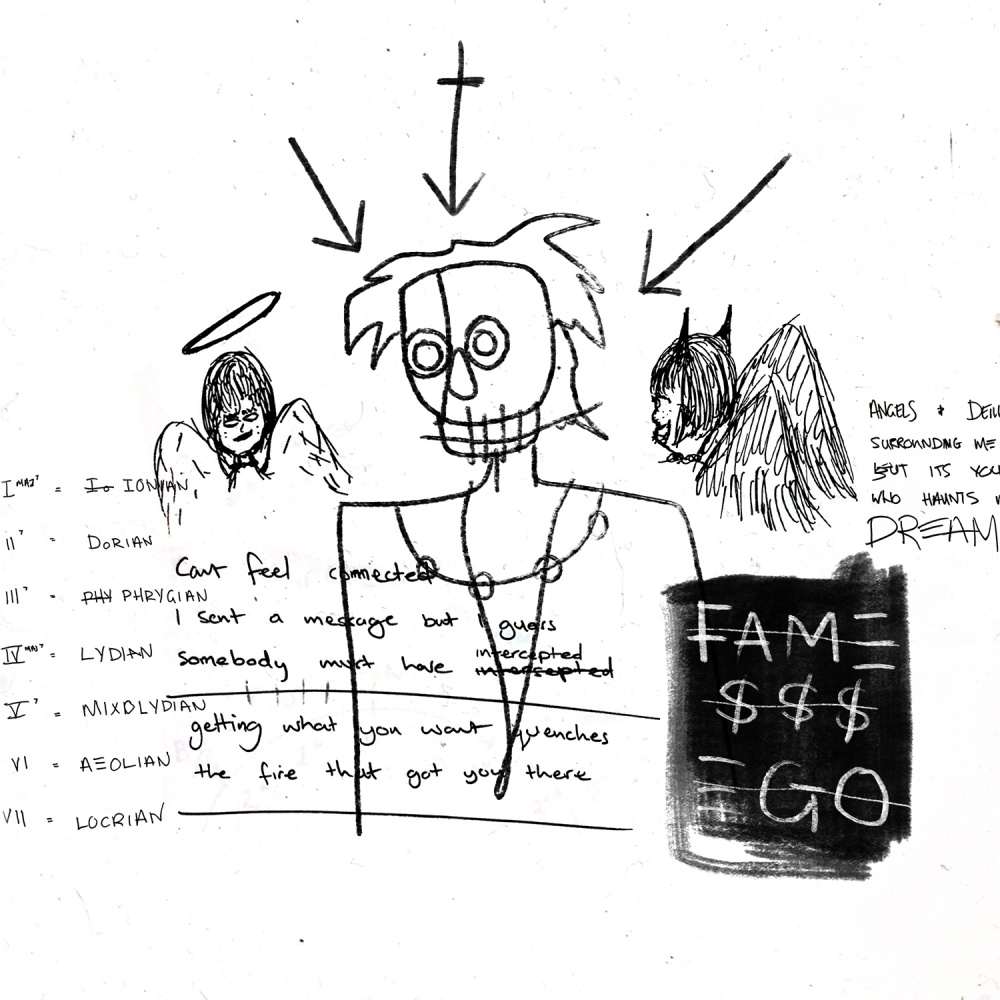 I MAJ7 = Io IONIAN,
II7 = DORIAN
III7 = PHY PHRYGIAN
IV MAJ7 = LYDIAN
V7 = MIXOLYDIAN
VI = AEOLIAN
VII = LOCRIAN
Cant feel connected
I sent a message but I guess
somebody must have intercepted
intersepted
getting what you want quenches
the fire that got you there
ANGELS + 
SURROUNDING ME
BUT ITS
WHO HAUNTS
DREAM
FAME
$$$
EGO